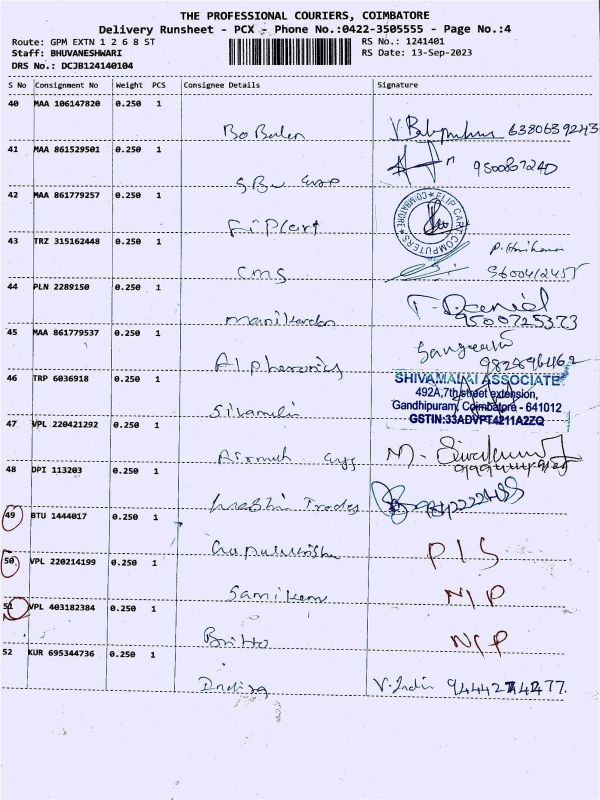 THE PROFESSIONAL COURIERS, COIMBATORE
Delivery Runsheet - PCX - Phone No.:0422-3505555 - Page No.:4
Route: GPM EXTN 1 2 6 8 ST
RS No.: 1241401
Staff: BHUVANESHWARI
RS Date: 13-Sep-2023
DRS No.: DCJB124140104
S No Consignment No Weight PCS Consignee Details Signature
40 MAA 106147820 0.250 1
6380639243
41 MAA 861529501 0.250 1
9500807240
42 MAA 861779257 0.250 1
Flipcart
FLIP CART COMPUTERS COIMBATORE
43 TRZ 315162448 0.250 1
cms
9600412455
44 PLN 2289150 0.250 1
Manikandan
T. Daniel
9500725373
45 MAA 861779537 0.250 1
Sangeeth
46 TRP 6036918 0.250 1
SHIVAMALAI ASSOCIATE
492A,7th street extension,
Gandhipuram, Coimbatore - 641012
GSTIN:33ADVPT4211A2ZQ
47 VPL 220421292 0.250 1
M.
48 DPI 113203 0.250 1
Trades
49 BTU 1444017 0.250 1
P/S
50 VPL 220214199 0.250 1
N/P
51 VPL 403182384 0.250 1
Britto
N/P
52 KUR 695344736 0.250 1